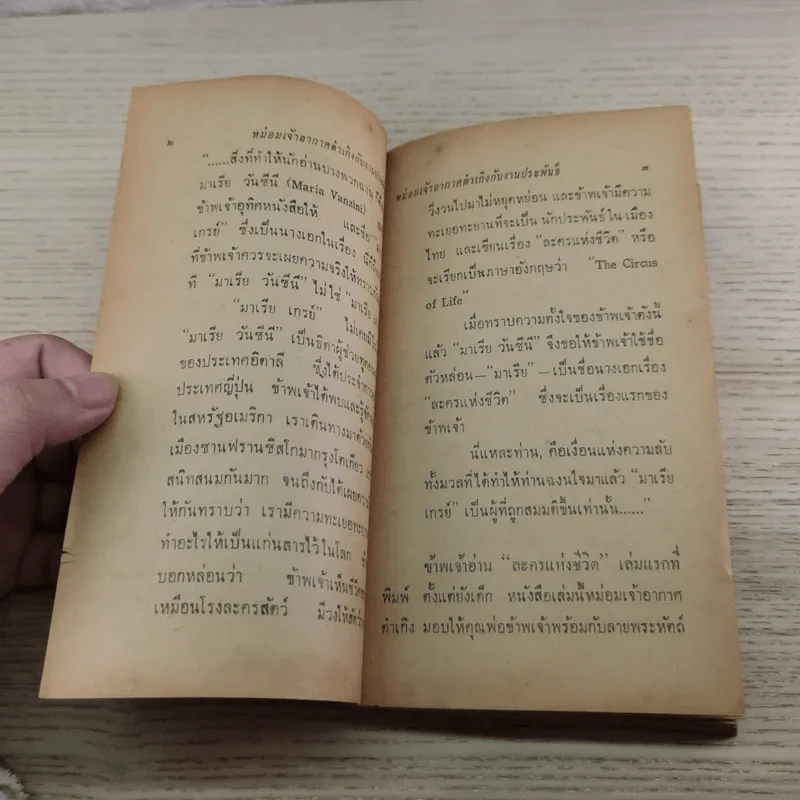 ๒
หม่อมเจ้าอากาศดำเกิงกับงาน
“......สิ่งที่ทำให้นักอ่านบางพวก
มาเรีย วันซีนี (Maria Vanzini)
ข้าพเจ้าอุทิศหนังสือให้ และชื่อ
เกรย์” ซึ่งเป็นนางเอกในเรื่อง
ที่ข้าพเจ้าควรจะเผยความจริงให้ทราบ
ที “มาเรีย วันซีนี” ไม่ใช่ “มาเรีย
“มาเรีย เกรย์” ไม่เคยมี
“มาเรีย วันซีนี” เป็นธิดาผู้ช่วยทูต
ของประเทศอิตาลี ซึ่งได้ประจำ
ประเทศญี่ปุ่น ข้าพเจ้าได้พบและรู้จัก
ในสหรัฐอเมริกา เราเดินทางมาด้วย
เมืองซานฟรานซิสโกมากรุงโตเกียว
สนิทสนมกันมาก จนถึงกับได้เผยความ
ให้กันทราบว่า เรามีความทะเยอทะยาน
ทำอะไรให้เป็นแก่นสารไว้ในโลก
บอกหล่อนว่า ข้าพเจ้าเห็นชีวิต
เหมือนโรงละครสัตว์ มีวงให้สัตว์
หม่อมเจ้าอากาศดำเกิงกับงานประพันธ์
๓
วิ่งวนไปมาไม่หยุดหย่อน และข้าพเจ้ามีความ
ทะเยอทะยานที่จะเป็น นักประพันธ์ ใน เมือง
ไทย และเขียนเรื่อง “ละครแห่งชีวิต” หรือ
จะเรียกเป็นภาษาอังกฤษว่า “The Circus
of Life”
เมื่อทราบความตั้งใจของข้าพเจ้าดังนี้
แล้ว “มาเรีย วันซีนี” จึงขอให้ข้าพเจ้าใช้ชื่อ
ตัวหล่อน—“มาเรีย” —เป็นชื่อนางเอกเรื่อง
“ละครแห่งชีวิต” ซึ่งจะเป็นเรื่องแรกของ
ข้าพเจ้า
นี่แหละท่าน, คือเงื่อนแห่งความลับ
ทั้งมวลที่ได้ทำให้ท่านฉงนใจมาแล้ว “มาเรีย
เกรย์” เป็นผู้ที่ถูกสมมติขึ้นเท่านั้น......”
ข้าพเจ้าอ่าน “ละครแห่งชีวิต” เล่มแรกที่
พิมพ์ ตั้งแต่ยังเด็ก หนังสือเล่มนี้หม่อมเจ้าอากาศ
ดำเกิง มอบให้คุณพ่อข้าพเจ้าพร้อมกับลายพระหัตถ์